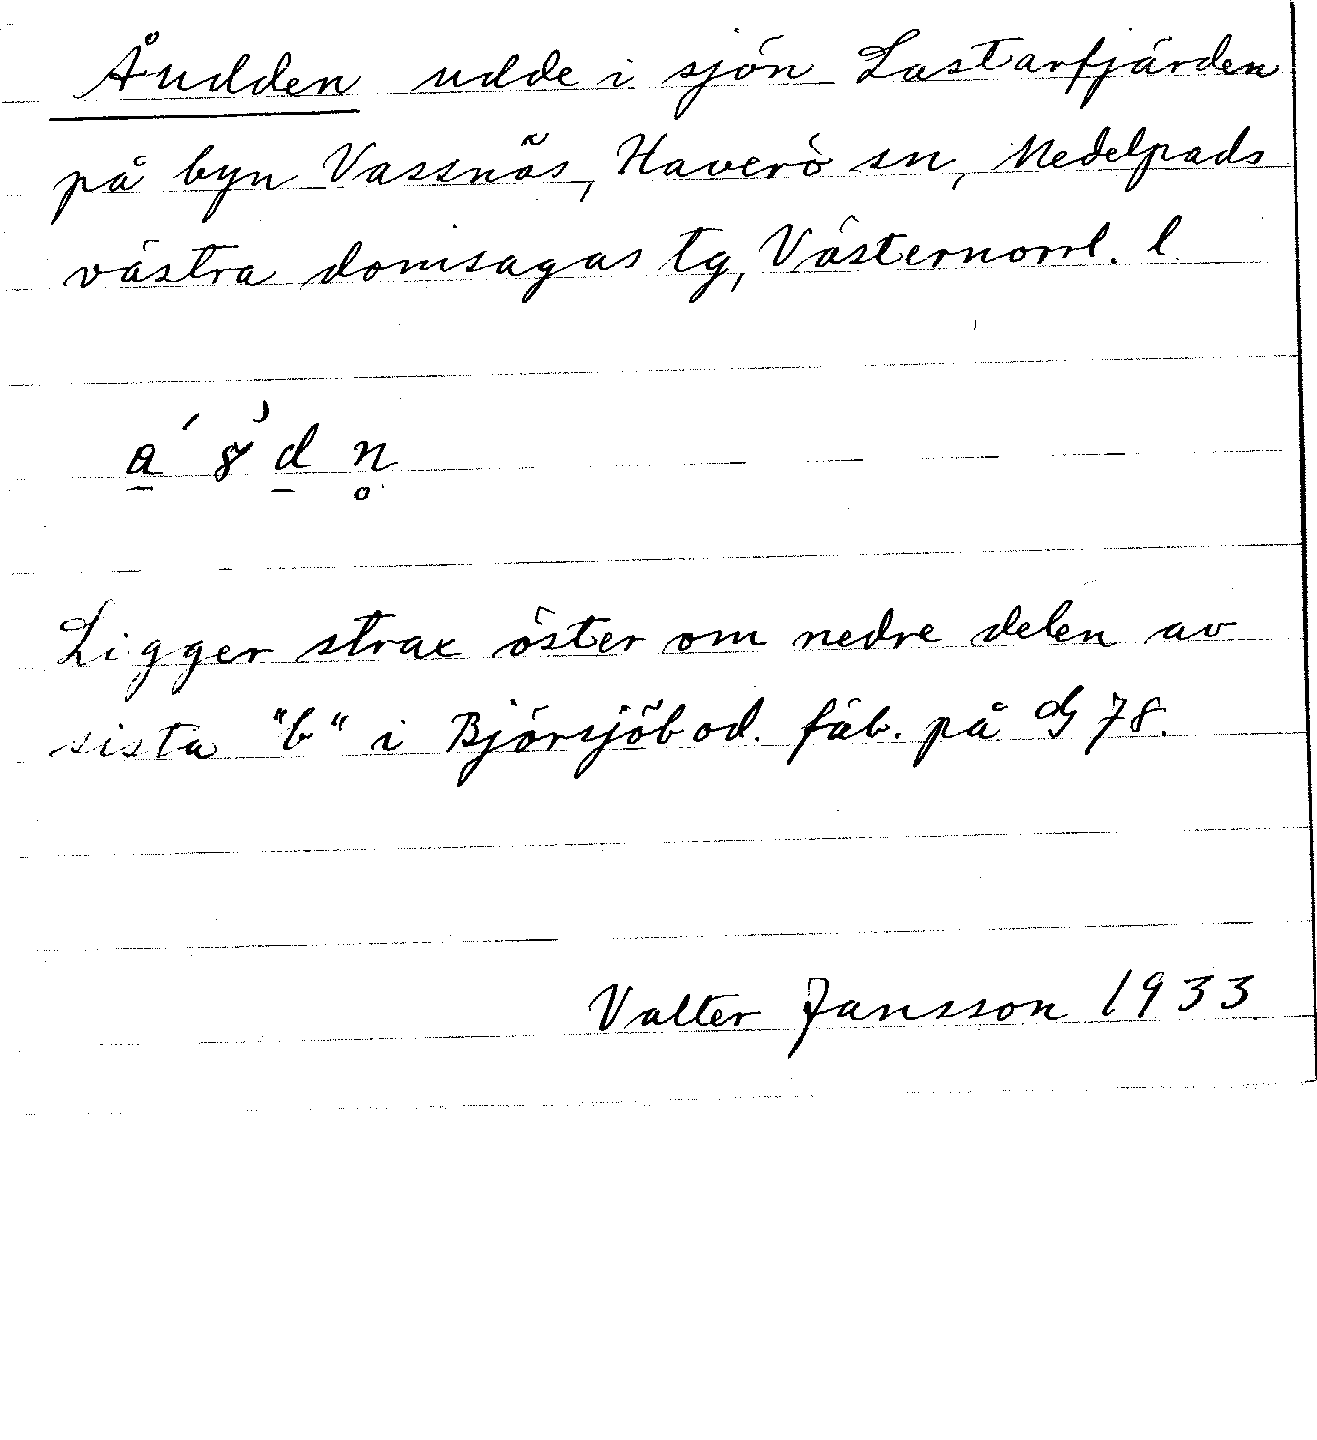 Åudden udde i sjön Lastarfjärden
på byn Vassnäs, Haverö sn, Medelpads
västra domsagas tg, Västernorrl. l
Ligger strax öster om nedre delen av
sista "b" i Björsjöbod. fäb. på G 78.
Valter Jansson 1933